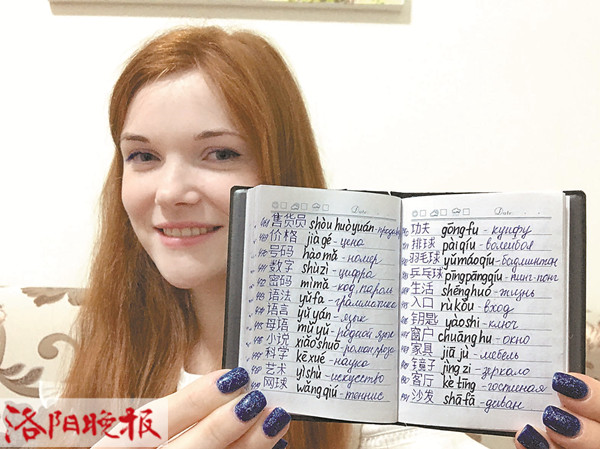 售货员 shòuhuòyuán - продавец
价格 jiàgé - цена
号码 hàomǎ - номер
数字 shùzì - цифра
密码 mìmǎ - код, пароль
语法 yǔfǎ - грамматика
语言 yǔyán - язык
母语 mǔyǔ - родной язык
小说 xiǎoshuō - роман, проза
科学 kēxué - наука
艺术 yìshù - искусство
网球 wǎngqiú - теннис
Date:
功夫 gōngfu - кунгфу
排球 páiqiú - волейбол
羽毛球 yǔmáoqiú - бадминтон
乒乓球 pīngpāngqiú - пинг-понг
生活 shēnghuó - жизнь
入口 rùkǒu - вход
钥匙 yàoshi - ключ
窗户 chuānghu - окно
家具 jiājù - мебель
镜子 jìngzi - зеркало
客厅 kètīng - гостиная
沙发 shāfā - диван
Date:
洛阳晚报